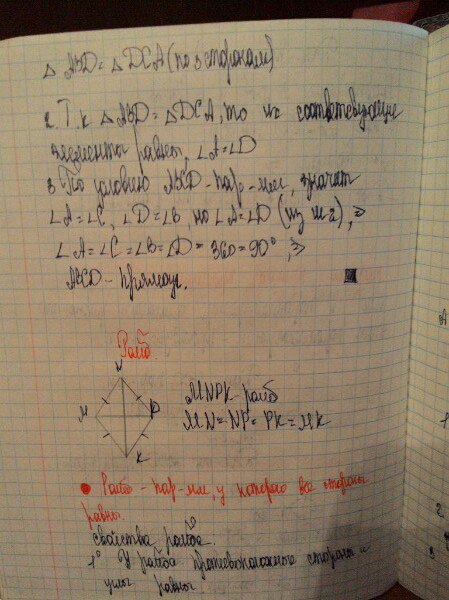 △ ABD = △ DCA (по 3 сторонам)
2. Т. к △ ABD = △ DCA, то их соответствующие
элементы равны, ∠A = ∠D
3 По условию ABCD - пар-мм, значит
∠A = ∠C, ∠D = ∠B, но ∠A = ∠D (из п 2), ⇒
∠A = ∠C = ∠B = ∠D = 360 = 90°, ⇒
ABCD - прямоуг.
Ромб.
N
M
P
K
MNPK - ромб
MN = NP = PK = MK
• Ромб - пар-мм, у которого все стороны
равны.
Свойства ромба:
1° У ромба противоположные стороны и
углы равны
2
3